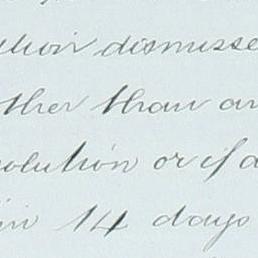 their dismisse
other than an
solution or if a
in 14 days